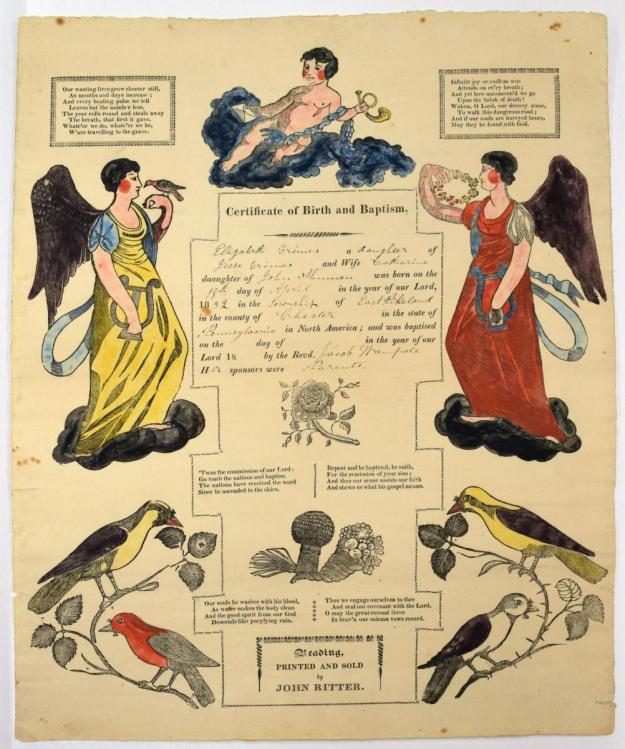 Our wasting lives grow shorter still,
As months and days increase;
And every beating pulse we tell
Leaves but the number less.
The year rolls round and steals away
The breath, that first it gave.
Whate'er we do, whate'er we be,
W'are travelling to the grave.
Infinite joy or endless woe
Attends on ev'ry breath;
And yet how unconcern'd we go
Upon the brink of death!
Waken, O Lord, our drowsy sense,
To walk this dangerous road;
And if our souls are hurryed hence,
May they be found with God.
Certificate of Birth and Baptism.
Elizabeth Grimes a daughter of
Jesse Grimes and Wife Catharina
daughter of John was born on the
day of April in the year of our Lord,
1832 in the Township of East Pikeland
in the county of Chester in the state of
Pennsylvania in North America; and was baptised
on the day of in the year of our
Lord 18 by the Revd. Jacob Wampole
H er sponsors were Parents
'Twas the commission of our Lord:
Go teach the nations and baptise,
The nations have received the word
Since he ascended to the skies.
Repent and be baptised, he saith,
For the remission of your sins;
And thus our sense assists our faith
And shows us what his gospel means.
Our souls he washes with his blood,
As water makes the body clean
And the good spirit from our God
Descends like puryfying rain.
Thus we engage ourselves to thee
And seal our covenant with the Lord,
O may the great eternal three
In heav'n our solemn vows record.
Reading,
PRINTED AND SOLD
by
JOHN RITTER.